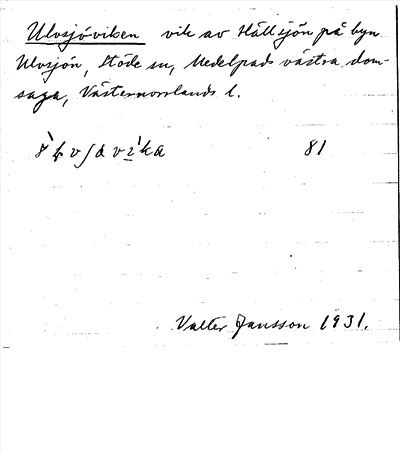 Ulvsjöviken vik av Hällsjön på byn
Ulvsjön, Stöde sn, Medelpads västra dom-
saga, Västernorrlands l.
81
Valter Jansson 1931.